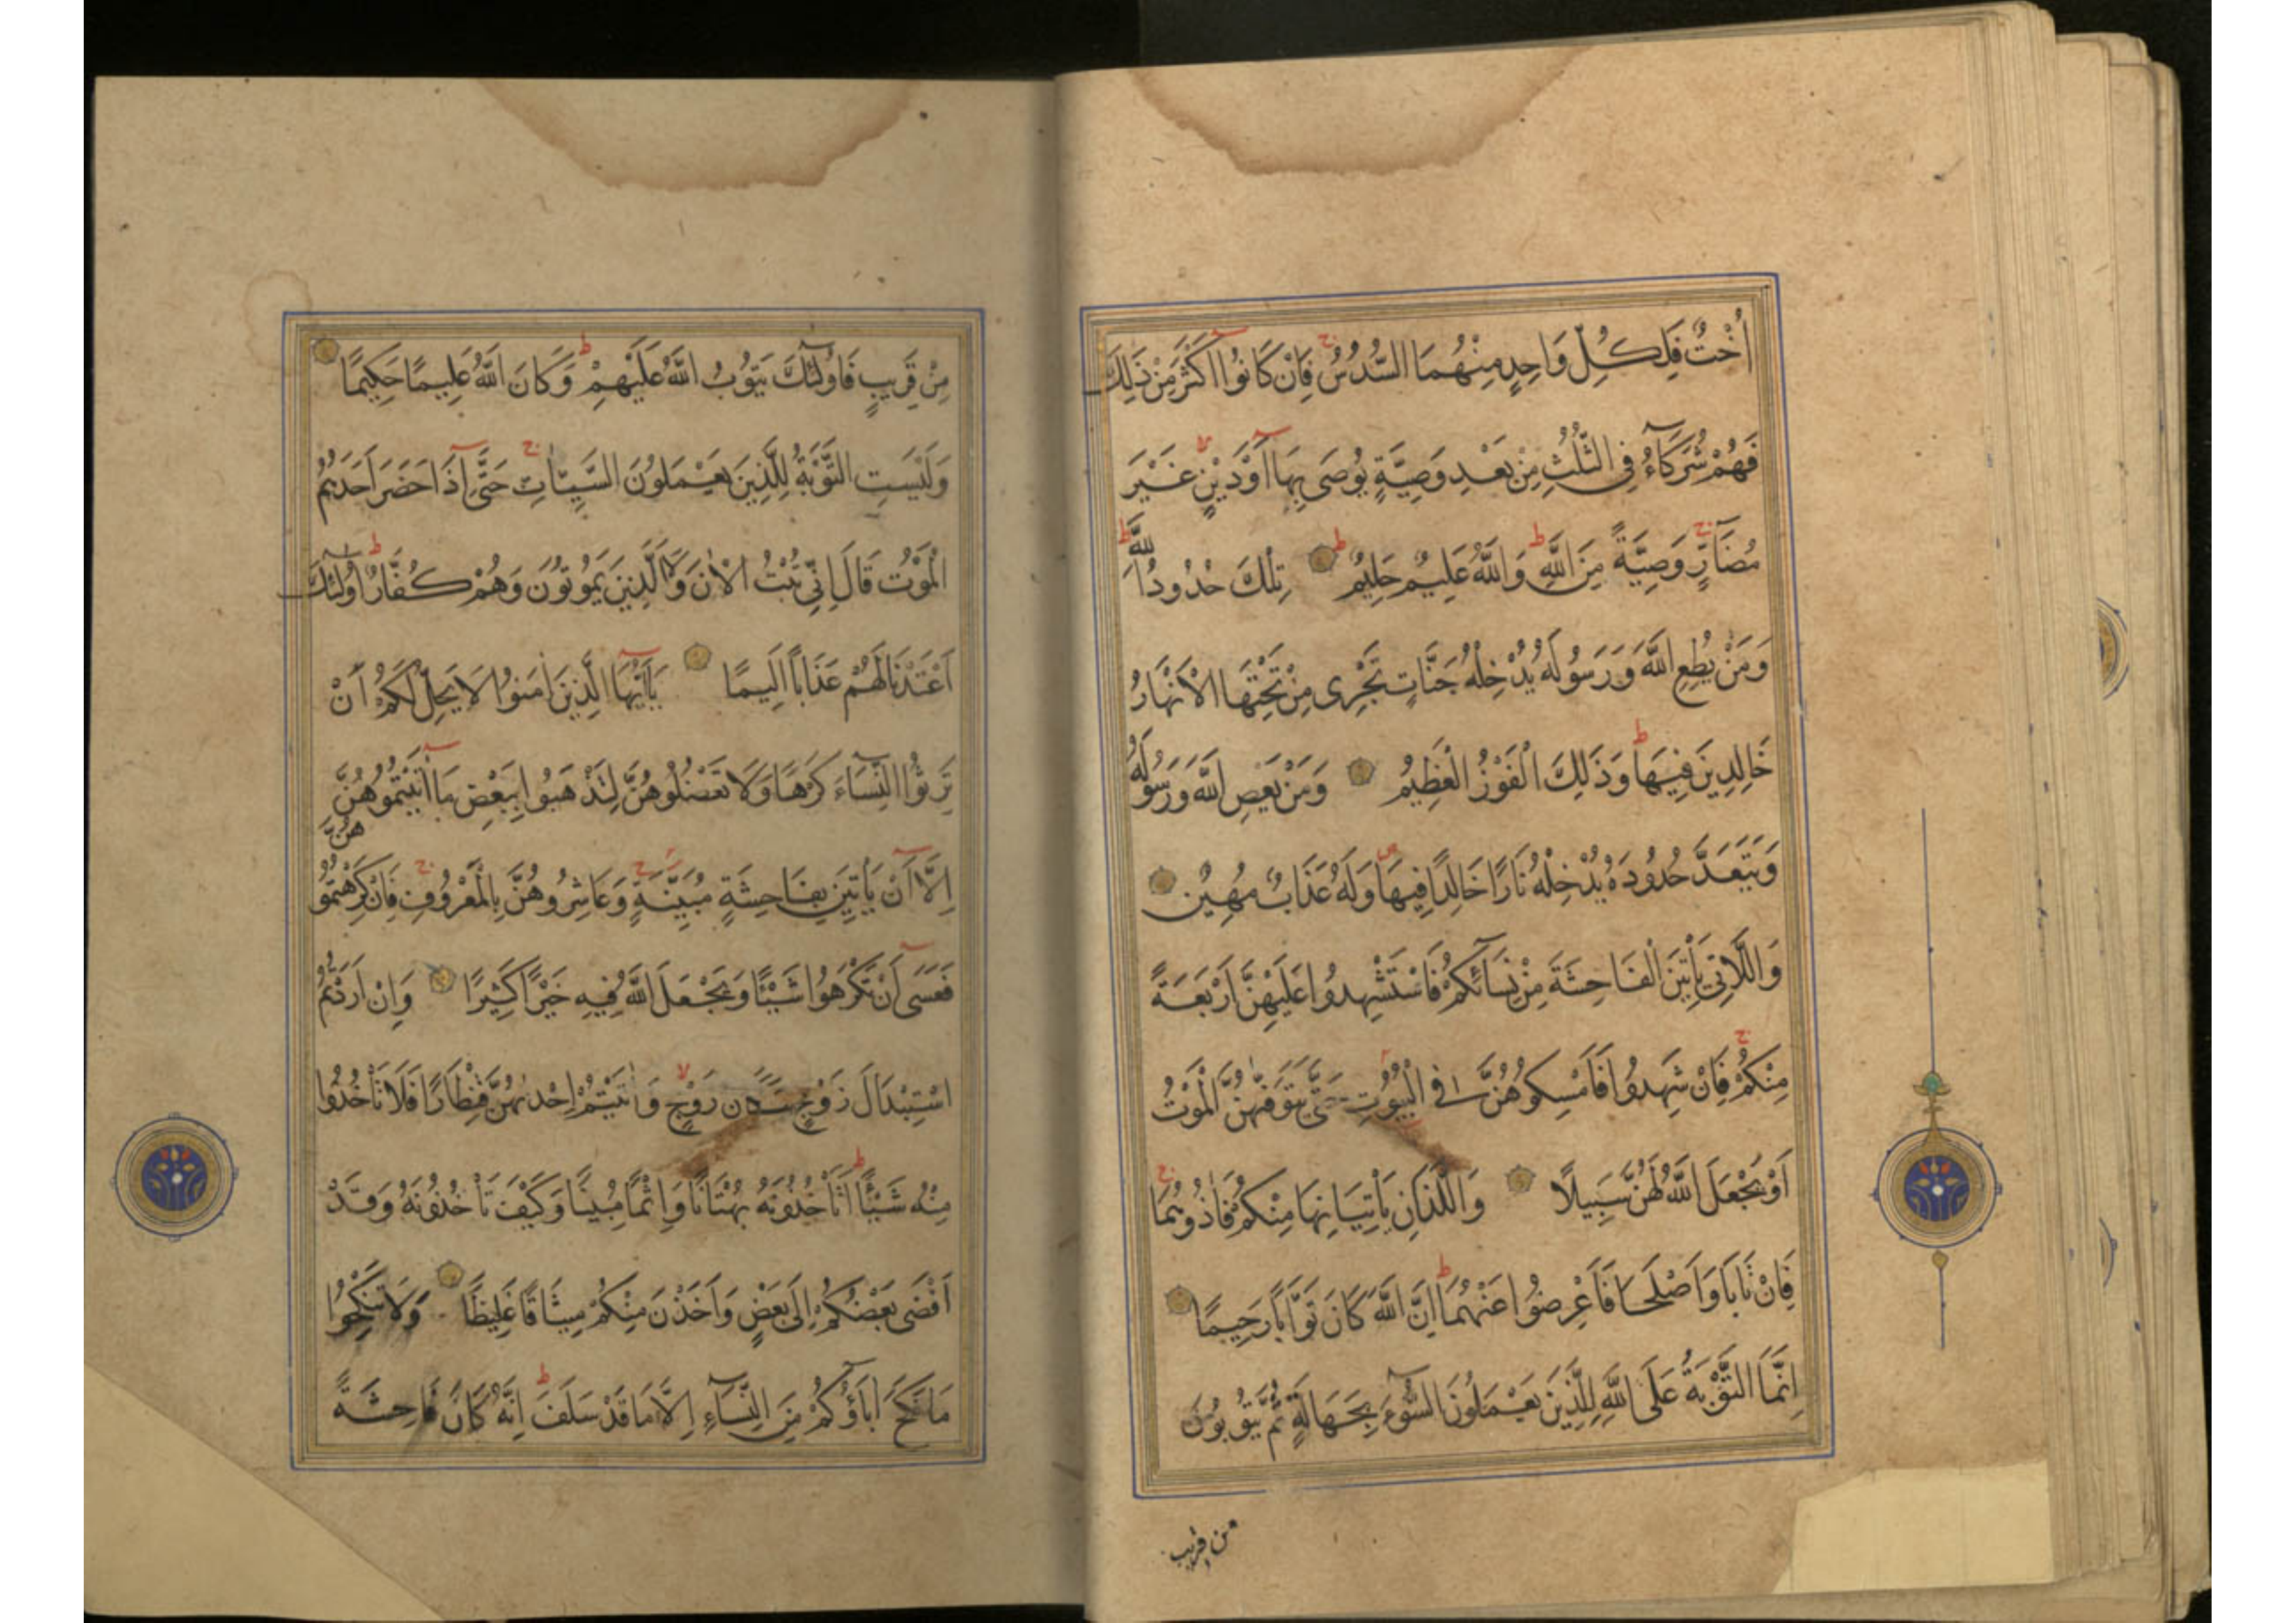 أُخْتٌ فَلِكُلِّ وَاحِدٍ مِنْهُمَا السُّدُسُ فَإِنْ كَانُوا أَكْثَرَ مِنْ ذَلِكَ
فَهُمْ شُرَكَآءُ فِي الثُّلُثِ مِنْ بَعْدِ وَصِيَّةٍ يُوصَى بِهَا أَوْ دَيْنٍ غَيْرَ
مُضَآرٍّ وَصِيَّةً مِنَ اللَّهِ وَاللَّهُ عَلِيمٌ حَلِيمٌ تِلْكَ حُدُودُ اللَّهِ
وَمَنْ يُطِعِ اللَّهَ وَرَسُولَهُ يُدْخِلْهُ جَنَّاتٍ تَجْرِى مِنْ تَحْتِهَا الْأَنْهَارُ
خَالِدِينَ فِيهَا وَذَلِكَ الْفَوْزُ الْعَظِيمُ وَمَنْ يَعْصِ اللَّهَ وَرَسُولَهُ
وَيَتَعَدَّ حُدُودَهُ يُدْخِلْهُ نَارًا خَالِدًا فِيهَا وَلَهُ عَذَابٌ مُهِينٌ
وَاللَّاتِي يَأْتِينَ الْفَاحِشَةَ مِنْ نِسَآئِكُمْ فَاسْتَشْهِدُوا عَلَيْهِنَّ أَرْبَعَةً
مِنْكُمْ فَإِنْ شَهِدُوا فَأَمْسِكُوهُنَّ فِي الْبُيُوتِ حَتَّى يَتَوَفَّيهُنَّ الْمَوْتُ
أَوْ يَجْعَلَ اللَّهُ لَهُنَّ سَبِيلًا وَاللَّذَانِ يَأْتِيَانِهَا مِنْكُمْ فَآذُوهُمَا
فَإِنْ تَابَا وَأَصْلَحَا فَأَعْرِضُوا عَنْهُمَا إِنَّ اللَّهَ كَانَ تَوَّابًا رَحِيمًا
إِنَّمَا التَّوْبَةُ عَلَى اللَّهِ لِلَّذِينَ يَعْمَلُونَ السُّوٓءَ بِجَهَالَةٍ ثُمَّ يَتُوبُونَ
من قريب
مِنْ قَرِيبٍ فَأُولَٓئِكَ يَتُوبُ اللَّهُ عَلَيْهِمْ وَكَانَ اللَّهُ عَلِيمًا حَكِيمًا
وَلَيْسَتِ التَّوْبَةُ لِلَّذِينَ يَعْمَلُونَ السَّيِّئَاتِ حَتَّى إِذَا حَضَرَ أَحَدَهُمُ
الْمَوْتُ قَالَ إِنِّي تُبْتُ الْآنَ وَلَا الَّذِينَ يَمُوتُونَ وَهُمْ كُفَّارٌ أُولَٓئِكَ
أَعْتَدْنَا لَهُمْ عَذَابًا أَلِيمًا يَآأَيُّهَا الَّذِينَ آمَنُوا لَا يَحِلُّ لَكُمْ أَنْ
تَرِثُوا النِّسَآءَ كَرْهًا وَلَا تَعْضُلُوهُنَّ لِتَذْهَبُوا بِبَعْضِ مَا آتَيْتُمُوهُنَّ
إِلَّا أَنْ يَأْتِينَ بِفَاحِشَةٍ مُبَيِّنَةٍ وَعَاشِرُوهُنَّ بِالْمَعْرُوفِ فَإِنْ كَرِهْتُمُوهُنَّ
فَعَسَى أَنْ تَكْرَهُوا شَيْئًا وَيَجْعَلَ اللَّهُ فِيهِ خَيْرًا كَثِيرًا وَإِنْ أَرَدْتُمُ
اسْتِبْدَالَ زَوْجٍ مَكَانَ زَوْجٍ وَآتَيْتُمْ إِحْدَيهُنَّ قِنْطَارًا فَلَا تَأْخُذُوا
مِنْهُ شَيْئًا أَتَأْخُذُونَهُ بُهْتَانًا وَإِثْمًا مُبِينًا وَكَيْفَ تَأْخُذُونَهُ وَقَدْ
أَفْضَى بَعْضُكُمْ إِلَى بَعْضٍ وَأَخَذْنَ مِنْكُمْ مِيثَاقًا غَلِيظًا وَلَا تَنْكِحُوا
مَا نَكَحَ آبَاؤُكُمْ مِنَ النِّسَآءِ إِلَّا مَا قَدْ سَلَفَ إِنَّهُ كَانَ فَاحِشَةً